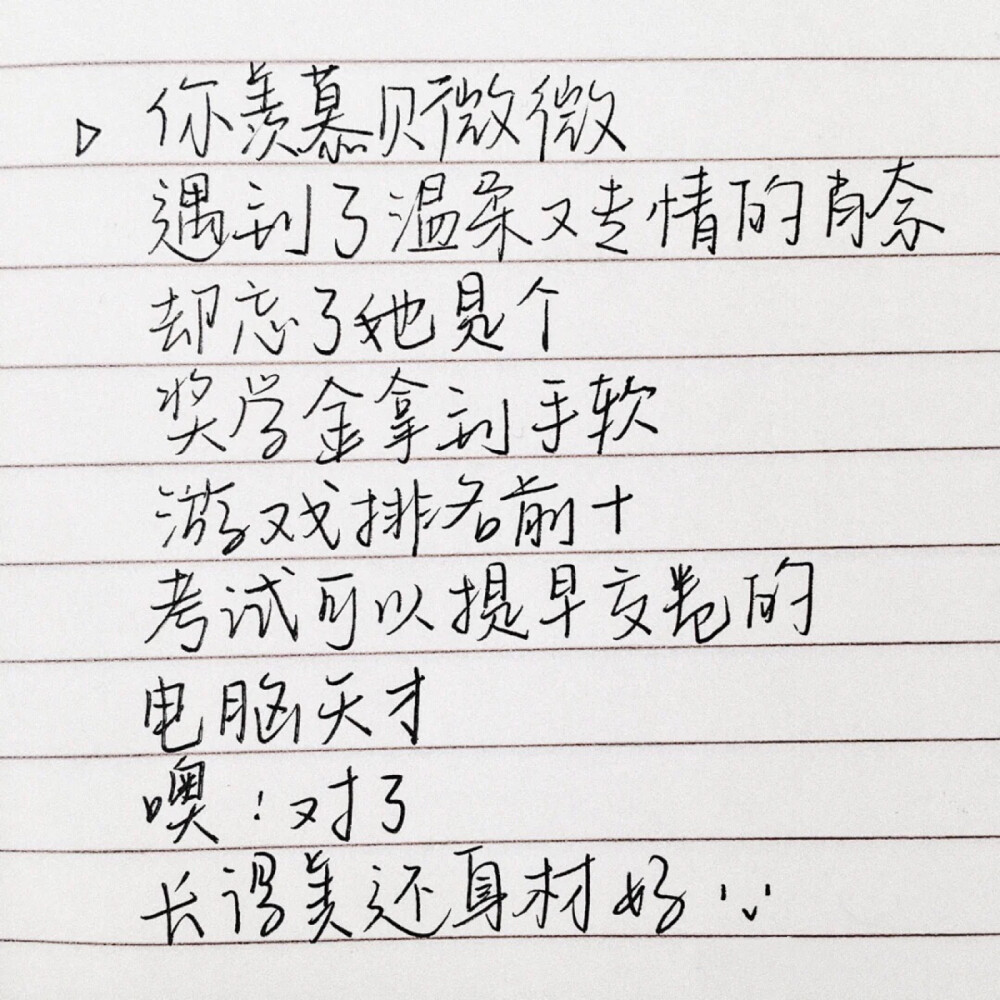 ▷ 你羡慕贝微微
遇到了温柔又专情的肖奈
却忘了她是个
奖学金拿到手软
游戏排名前十
考试可以提早交卷的
电脑天才
噢!对了
长得美还身材好